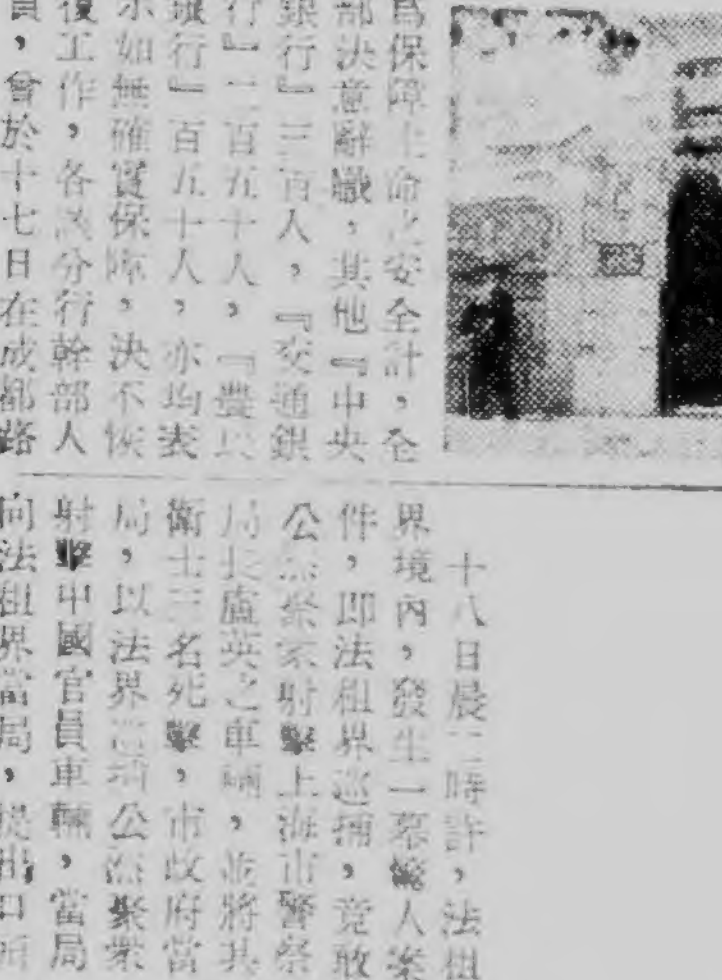 爲保障生命之安全計，全
部決意辭職，其他『中央
銀行』三百人，『交通銀
行』二百五十人，『農民
銀行』百五十人，亦均表
示如無確實保障，決不恢
復工作，各該分行幹部人
員，會於十七日在成都路
十八日晨三時許，法租
界境內，發生一幕驚人案
件，即法租界巡捕，竟敢
公然聚眾射擊上海市警察
局長盧英之車輛，並將其
衛士三名死擊，市政府當
局，以法界巡捕公然聚眾
射擊中國官員車輛，當局
向法租界當局，提出口頭